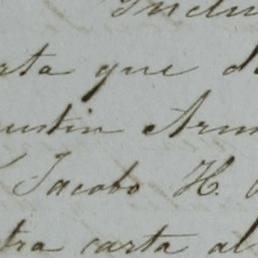 Inclu
rta que d
ustin Arm
Jacobo H.
tra carta al